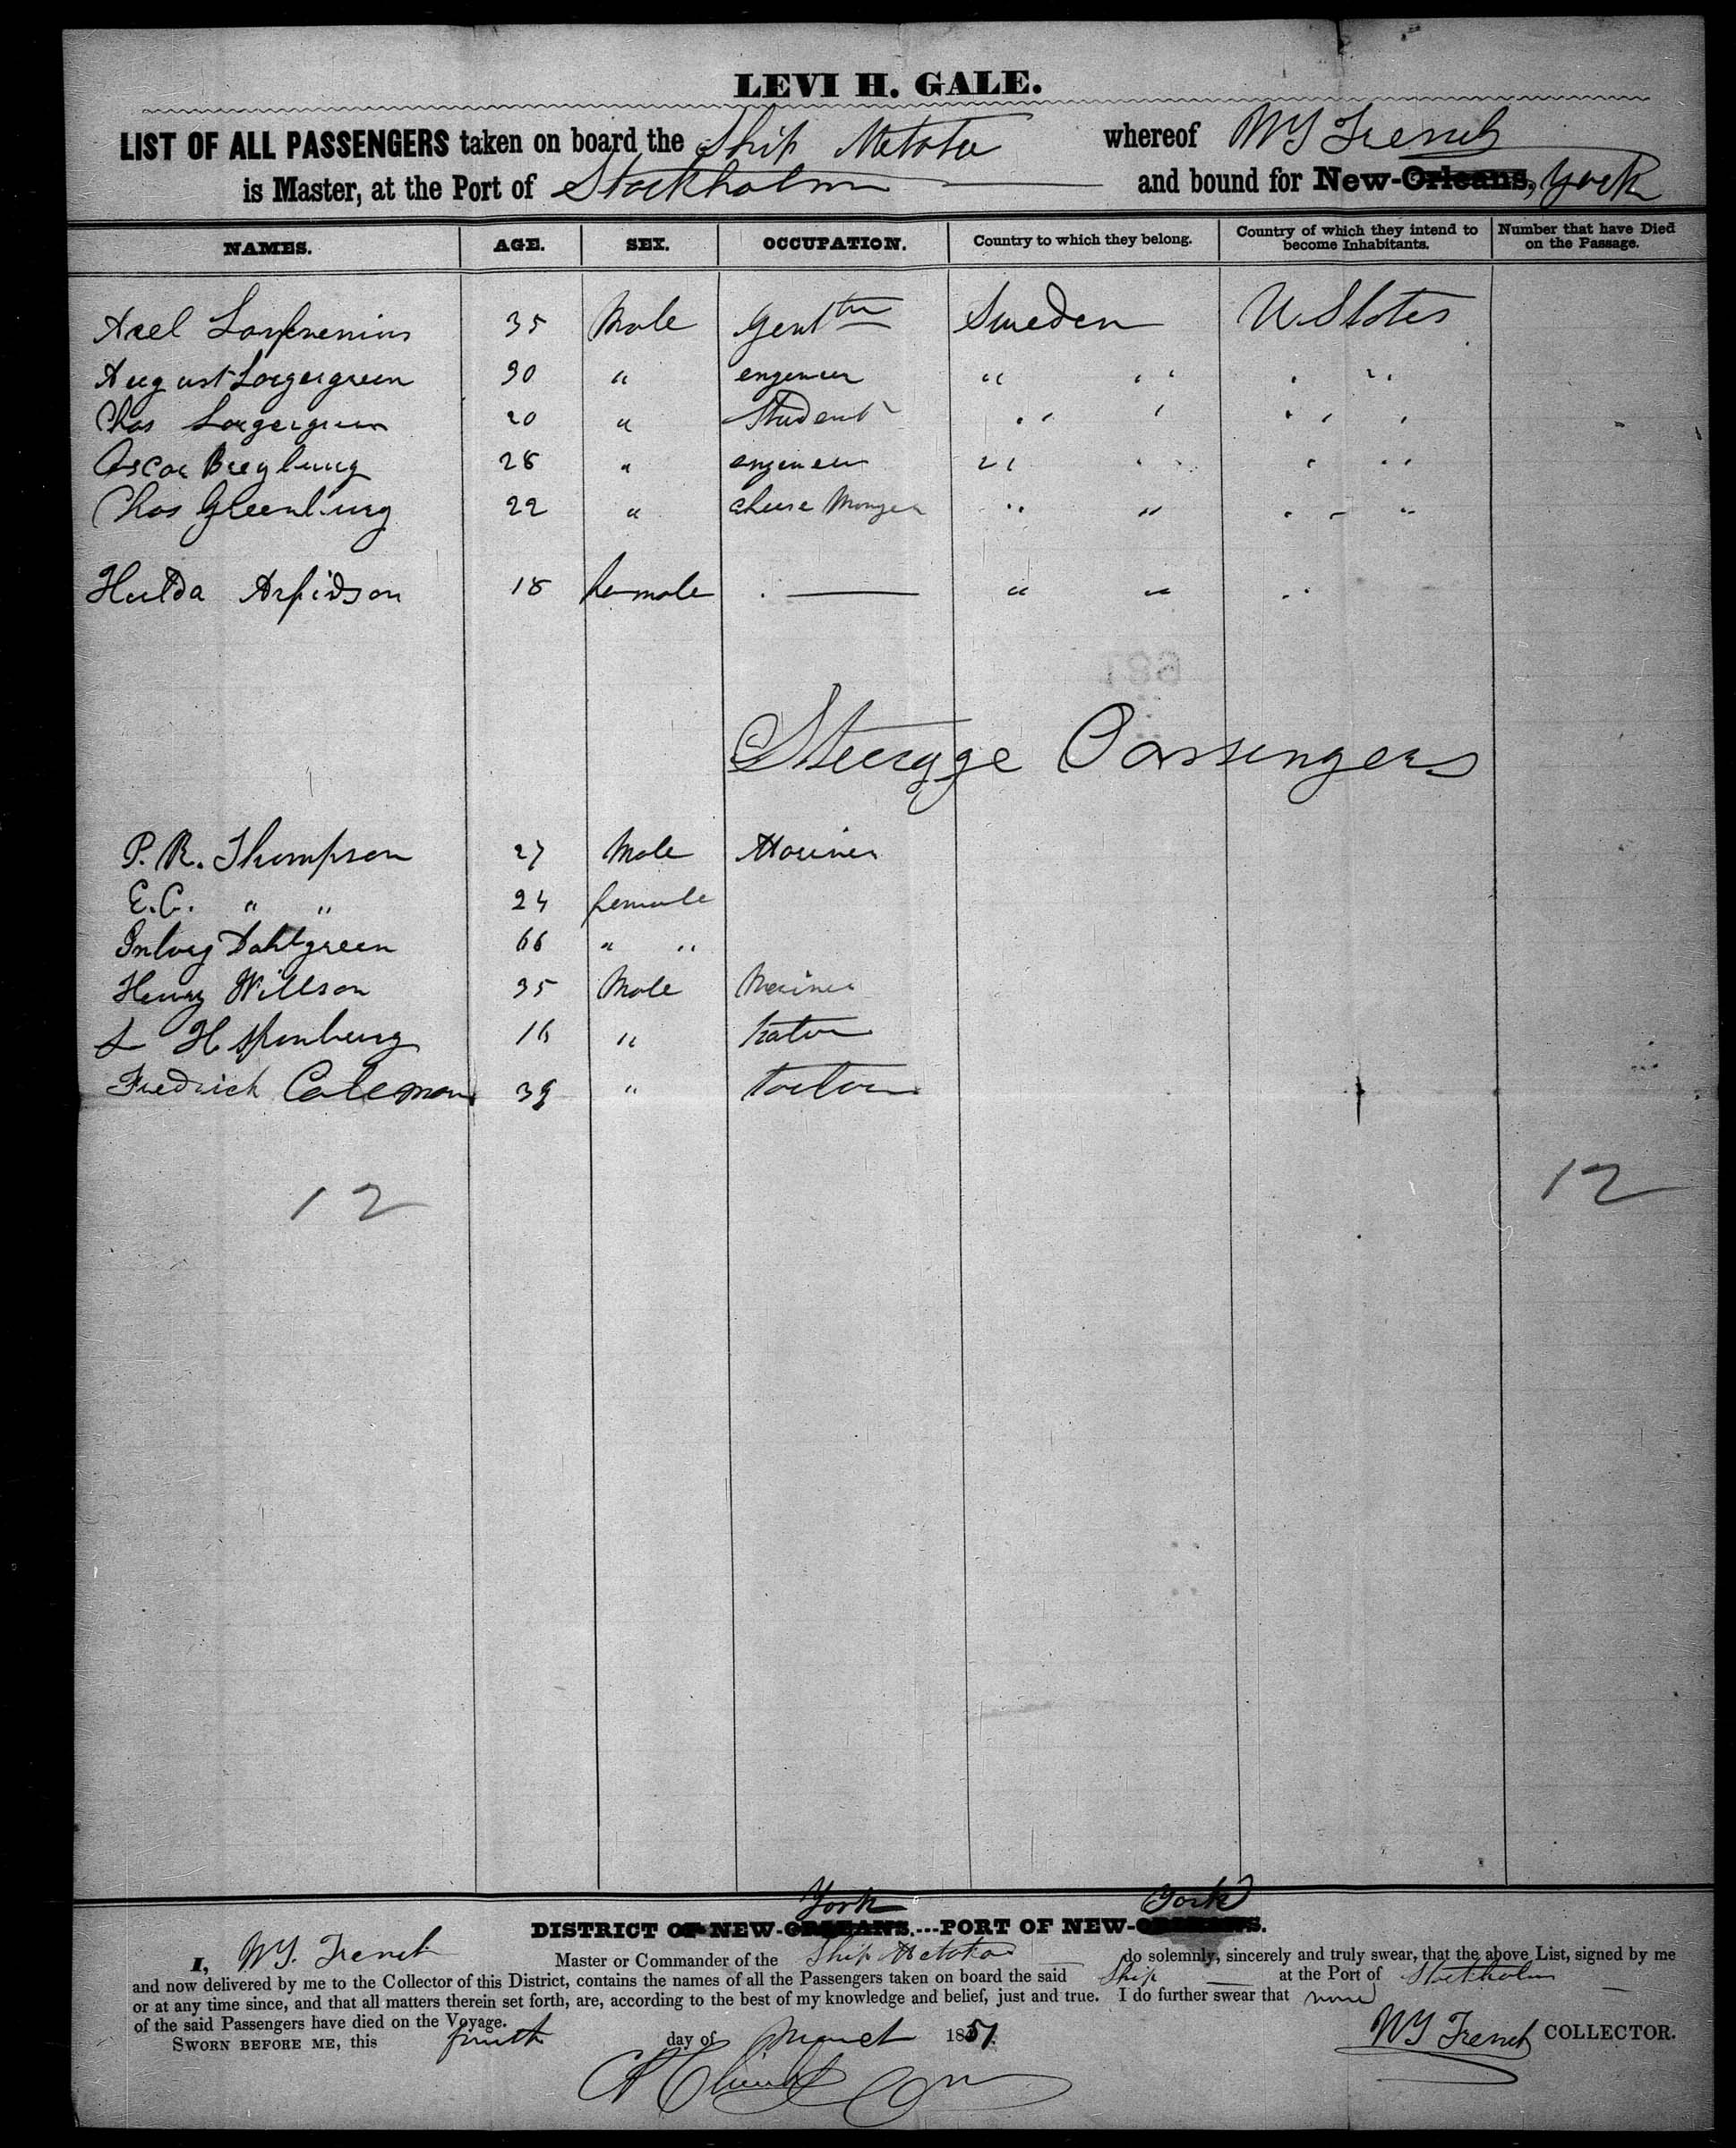 LEVI H. GALE.
LIST OF ALL PASSENGERS taken on board the Ship whereof
is Master, at the Port of Stockholm and bound for New-Orleans, York
NAMES. AGE. SEX. OCCUPATION. Country to which they belong. Country of which they intend to become Inhabitants. Number that have Died on the Passage.
Axel 35 Male Gent Sweden U. States
August 30 " engeneer " "
Chas 20 " Student
Oscar 28 " engeneer " "
Chas Greenburg 22 " cheese Monger " "
Hulda Arfidson 18 female " "
Steerage Passengers
P. R. Thompson 27 Male Mariner
E. C. " " 24 female
Dahlgreen 66 " "
Henry Willson 35 Male Mariner
16 "
Fredrich Coleman 39 "
12 12
York York
DISTRICT OF NEW-ORLEANS.---PORT OF NEW-ORLEANS.
I, Master or Commander of the Ship do solemnly, sincerely and truly swear, that the above List, signed by me
and now delivered by me to the Collector of this District, contains the names of all the Passengers taken on board the said Ship at the Port of Stockholm
or at any time since, and that all matters therein set forth, are, according to the best of my knowledge and belief, just and true. I do further swear that none
of the said Passengers have died on the Voyage.
SWORN BEFORE ME, this day of 1851 COLLECTOR.